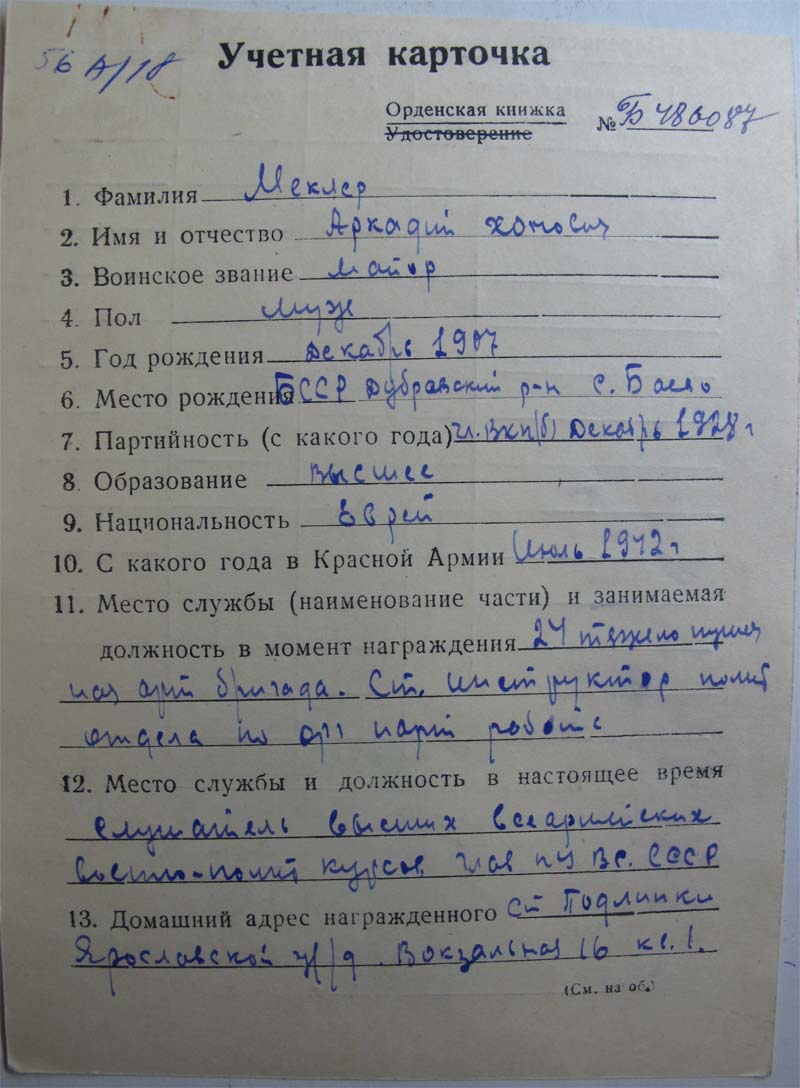 56 А/18
Учетная карточка
Орденская книжка
Удостоверение № Б 486087
1. Фамилия Меклер
2. Имя и отчество Аркадий Хонович
3. Воинское звание Майор
4. Пол муж
5. Год рождения Декабрь 1907
6. Место рождения БССР Дубравский р-н с.
7. Партийность (с какого года) чл. ВКП(б) Декабрь 1928 г
8. Образование высшее
9. Национальность Еврей
10. С какого года в Красной Армии Июль 1942 г
11. Место службы (наименование части) и занимаемая
должность в момент награждения 24 тяжело пушеч
ная арт бригада. Ст. инструктор полит
отдела по орг парт работе
12. Место службы и должность в настоящее время
слушатель высших всеармейских
военно-полит курсов глав ПУ ВС. СССР
13. Домашний адрес награжденного ст Подлипки
Ярославской ж/д. Вокзальная 16 кв. 1.
(См. на об.)